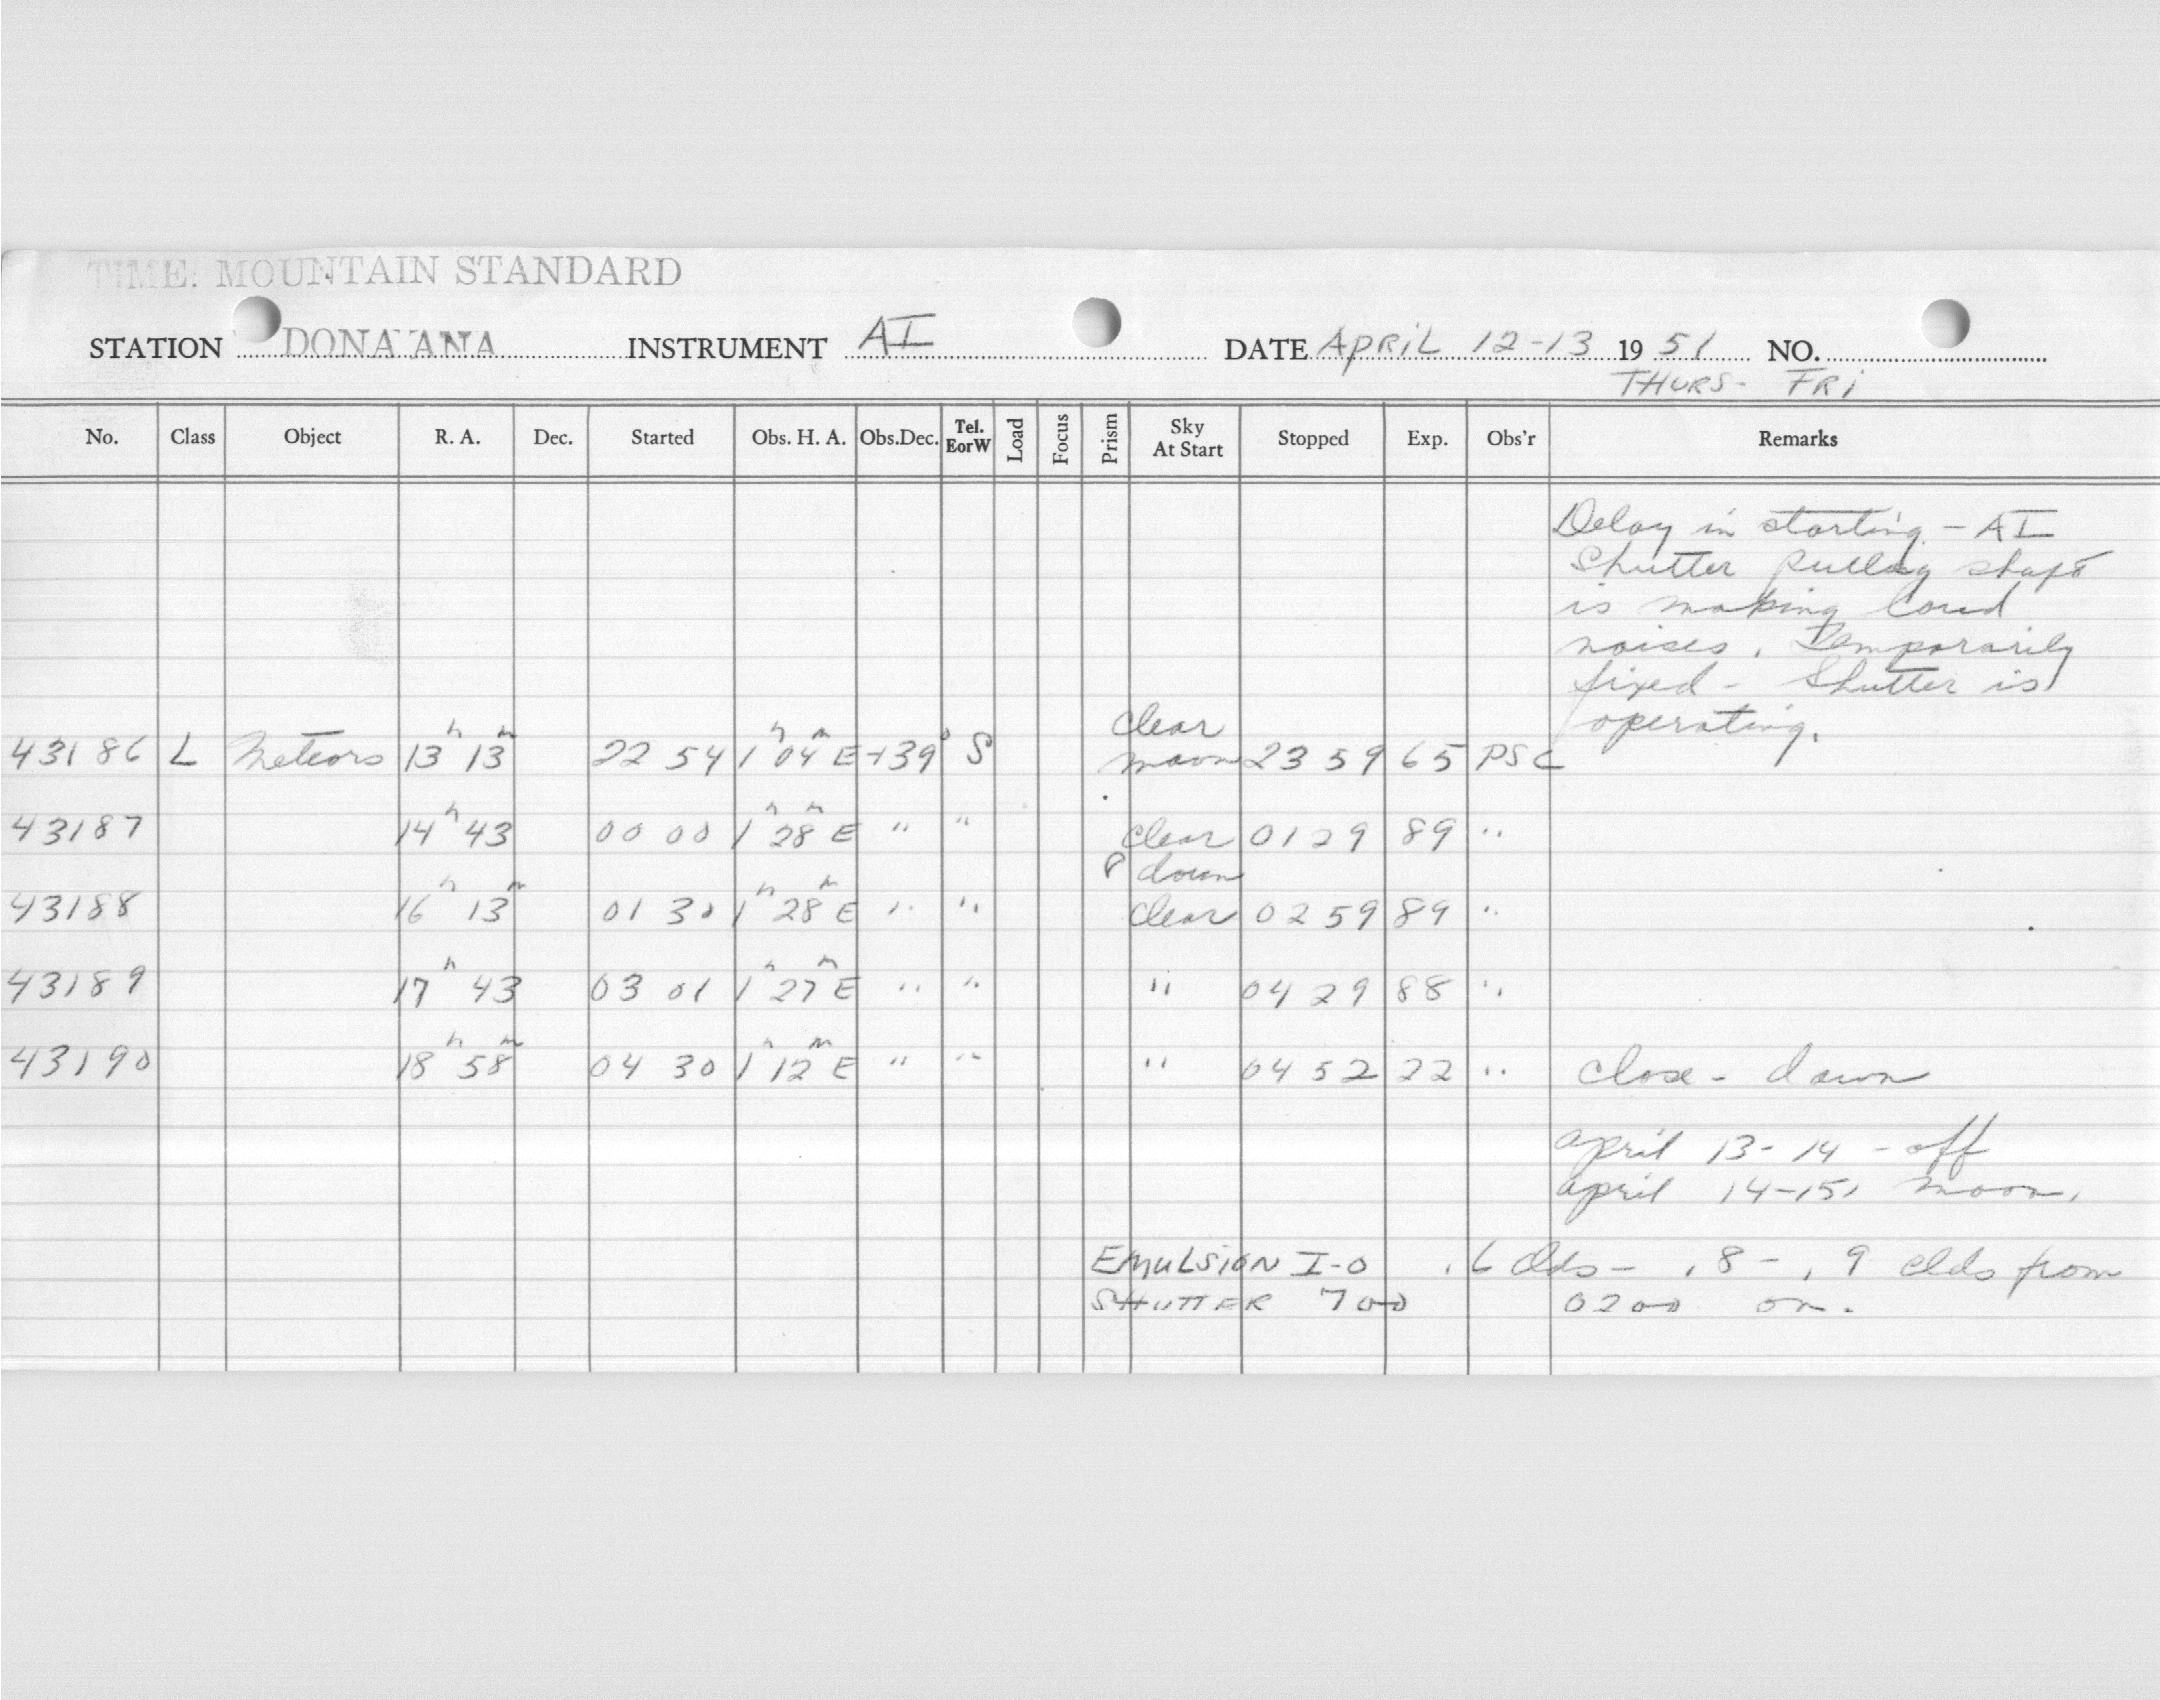 TIME: MOUNTAIN STANDARD
STATION DONA ANA INSTRUMENT AI DATE APRIL 12-13 19 51 NO.
THURS- FRI
No. Class Object R. A. Dec. Started Obs. H. A. Obs.Dec. Tel. EorW Load Focus Prism Sky At Start Stopped Exp. Obs'r Remarks
Delay in starting - AI
Shutter pulling shaft
is making loud
noises. Temporarily
fixed - Shutter is
operating.
clear
43186 L Meteors 13h 13m 22 54 1h 04m E +39° S moon 23 59 65 PSC
43187 14h 43 00 00 1h 28m E " " clear 01 29 89 "
down
43188 16h 13m 01 30 1h 28m E " " clear 02 59 89 "
43189 17h 43 03 01 1h 27m E " " " 04 29 88 "
43190 18h 58m 04 30 1h 12m E " " " 04 52 22 " close - dawn
April 13-14 - off
April 14-15, moon.
EMULSION I-O .6 clds - .8 - .9 clds from
SHUTTER 700 0200 on.